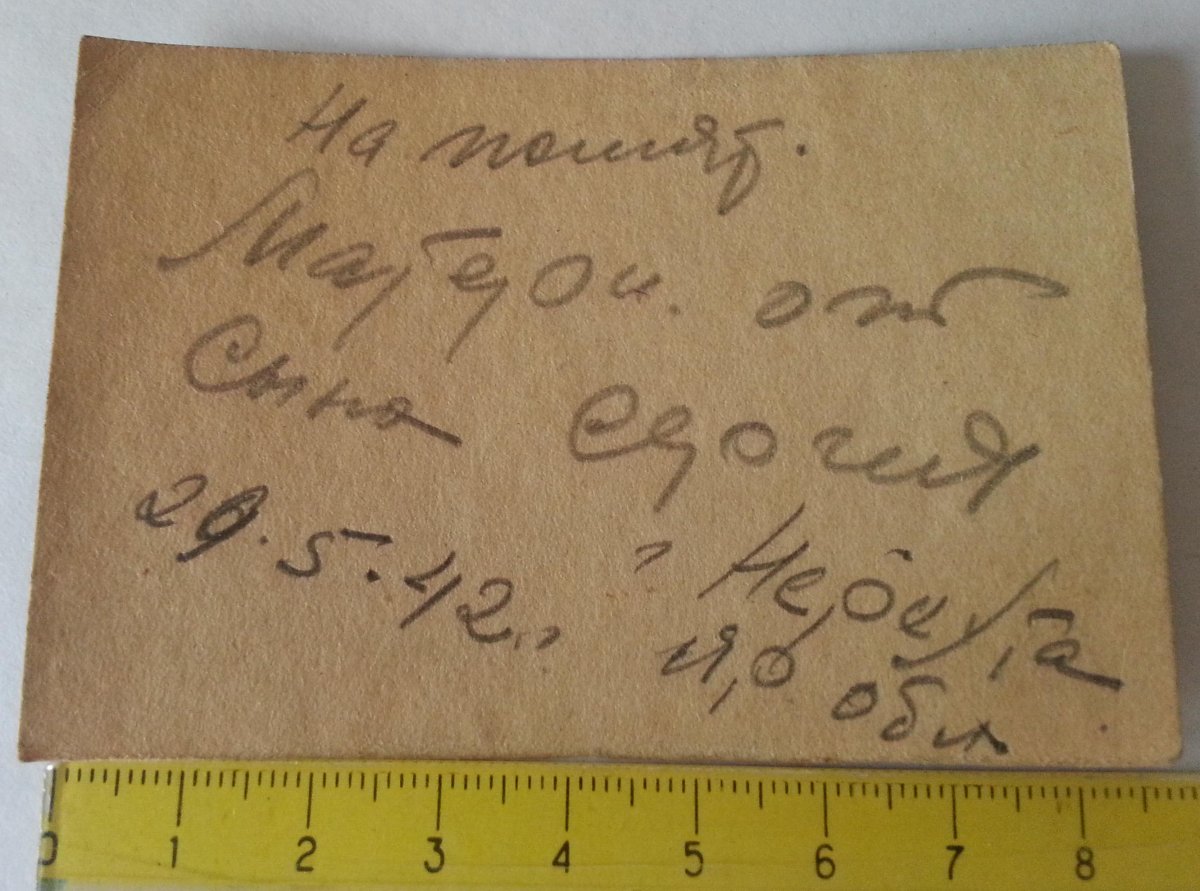 На памят.
Матери. от
Сына Сергия
29.5.42.,, г. Нерехта
Яр. обл
0 1 2 3 4 5 6 7 8